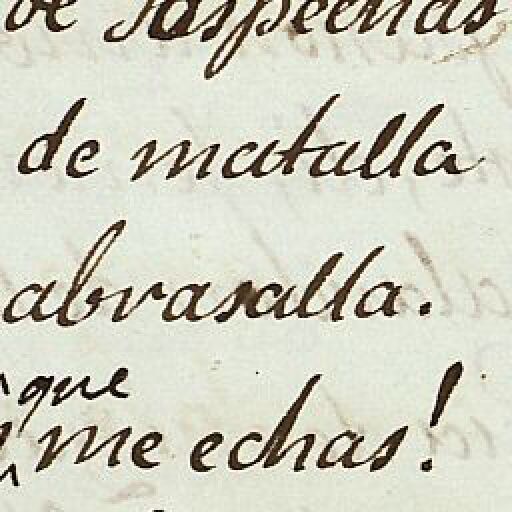 de sospechas
de matalla
abrasalla.
que
me echas!